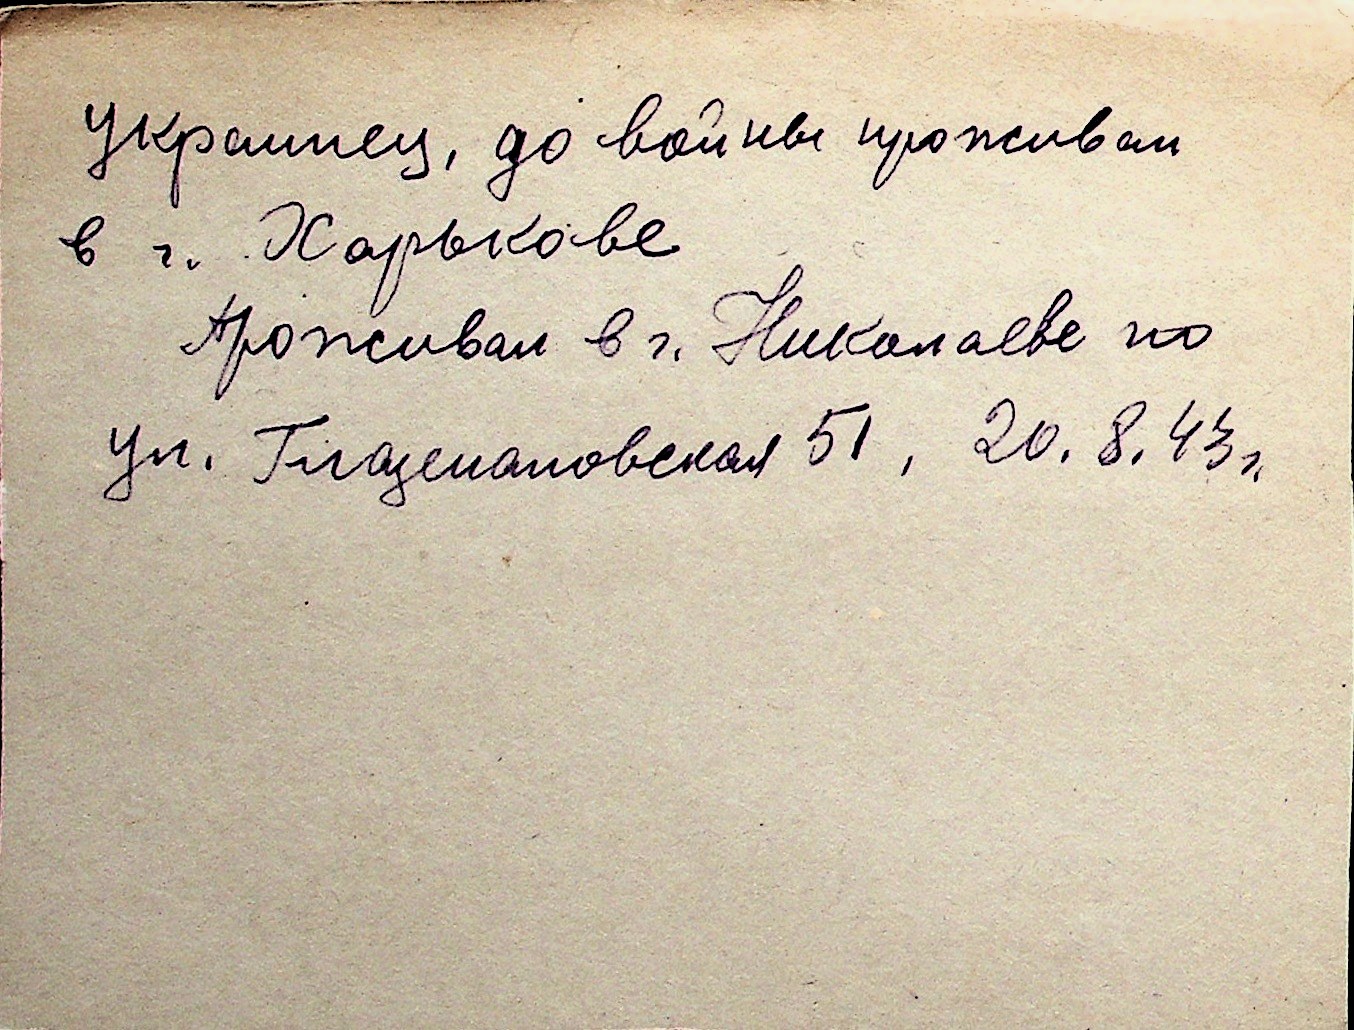 Украинец, до войны проживал
в г. Харькове
Проживал в г. Николаеве по
ул. Глазенаповская 51, 20.8.43 г.